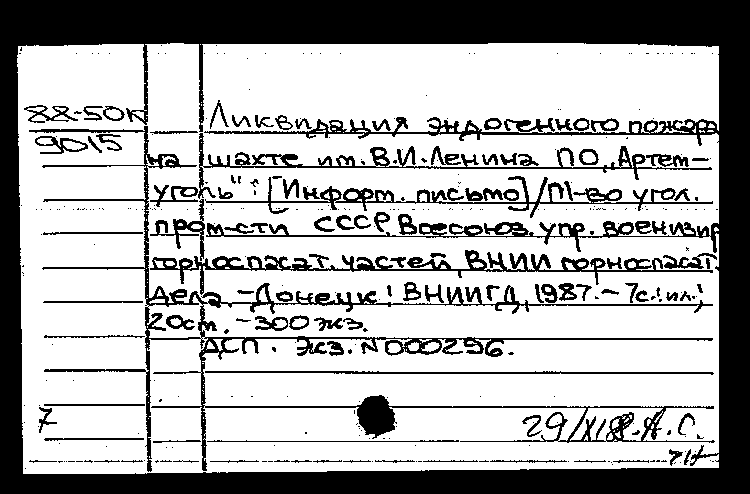 88-50К
9015
Ликвидация эндогенного пожара
на шахте им. В.И.Ленина ПО „Артем-
уголь" : [Информ. письмо] / М-во угол.
пром-сти СССР, Всесоюз. упр. военизир
горноспасат. частей, ВНИИ горноспасат.
дела. - Донецк : ВНИИГД, 1987. - 7с.: ил.;
20см. - 300 экз.
ДСП. Экз. N 000296.
7
29/XI 88. А.С.